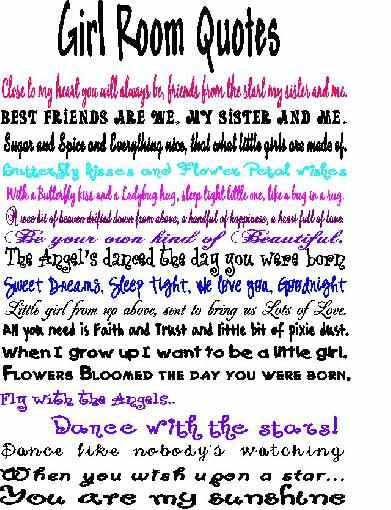 Girl Room Quotes
Close to my heart you will always be, friends from the start my sister and me.
BEST FRIENDS ARE WE, MY SISTER AND ME.
Sugar and Spice and Everything nice, that what little girls are made of.
Butterfly kisses and Flower Petal wishes
With a Butterfly kiss and a Ladybug hug, sleep tight little one, like a bug in a rug.
A wee bit of heaven drifted down from above, a handful of happiness, a heart full of love.
Be your own kind of Beautiful.
The Angel's danced the day you were born
Sweet Dreams, Sleep Tight, We love you, Goodnight
Little girl from up above, sent to bring us Lots of Love.
All you need is Faith and Trust and little bit of pixie dust.
When I grow up I want to be a little girl.
FLOWERS BLOOMED THE DAY YOU WERE BORN.
Fly with the Angels..
Dance with the stars!
Dance like nobody's watching
When you wish upon a star...
You are my sunshine